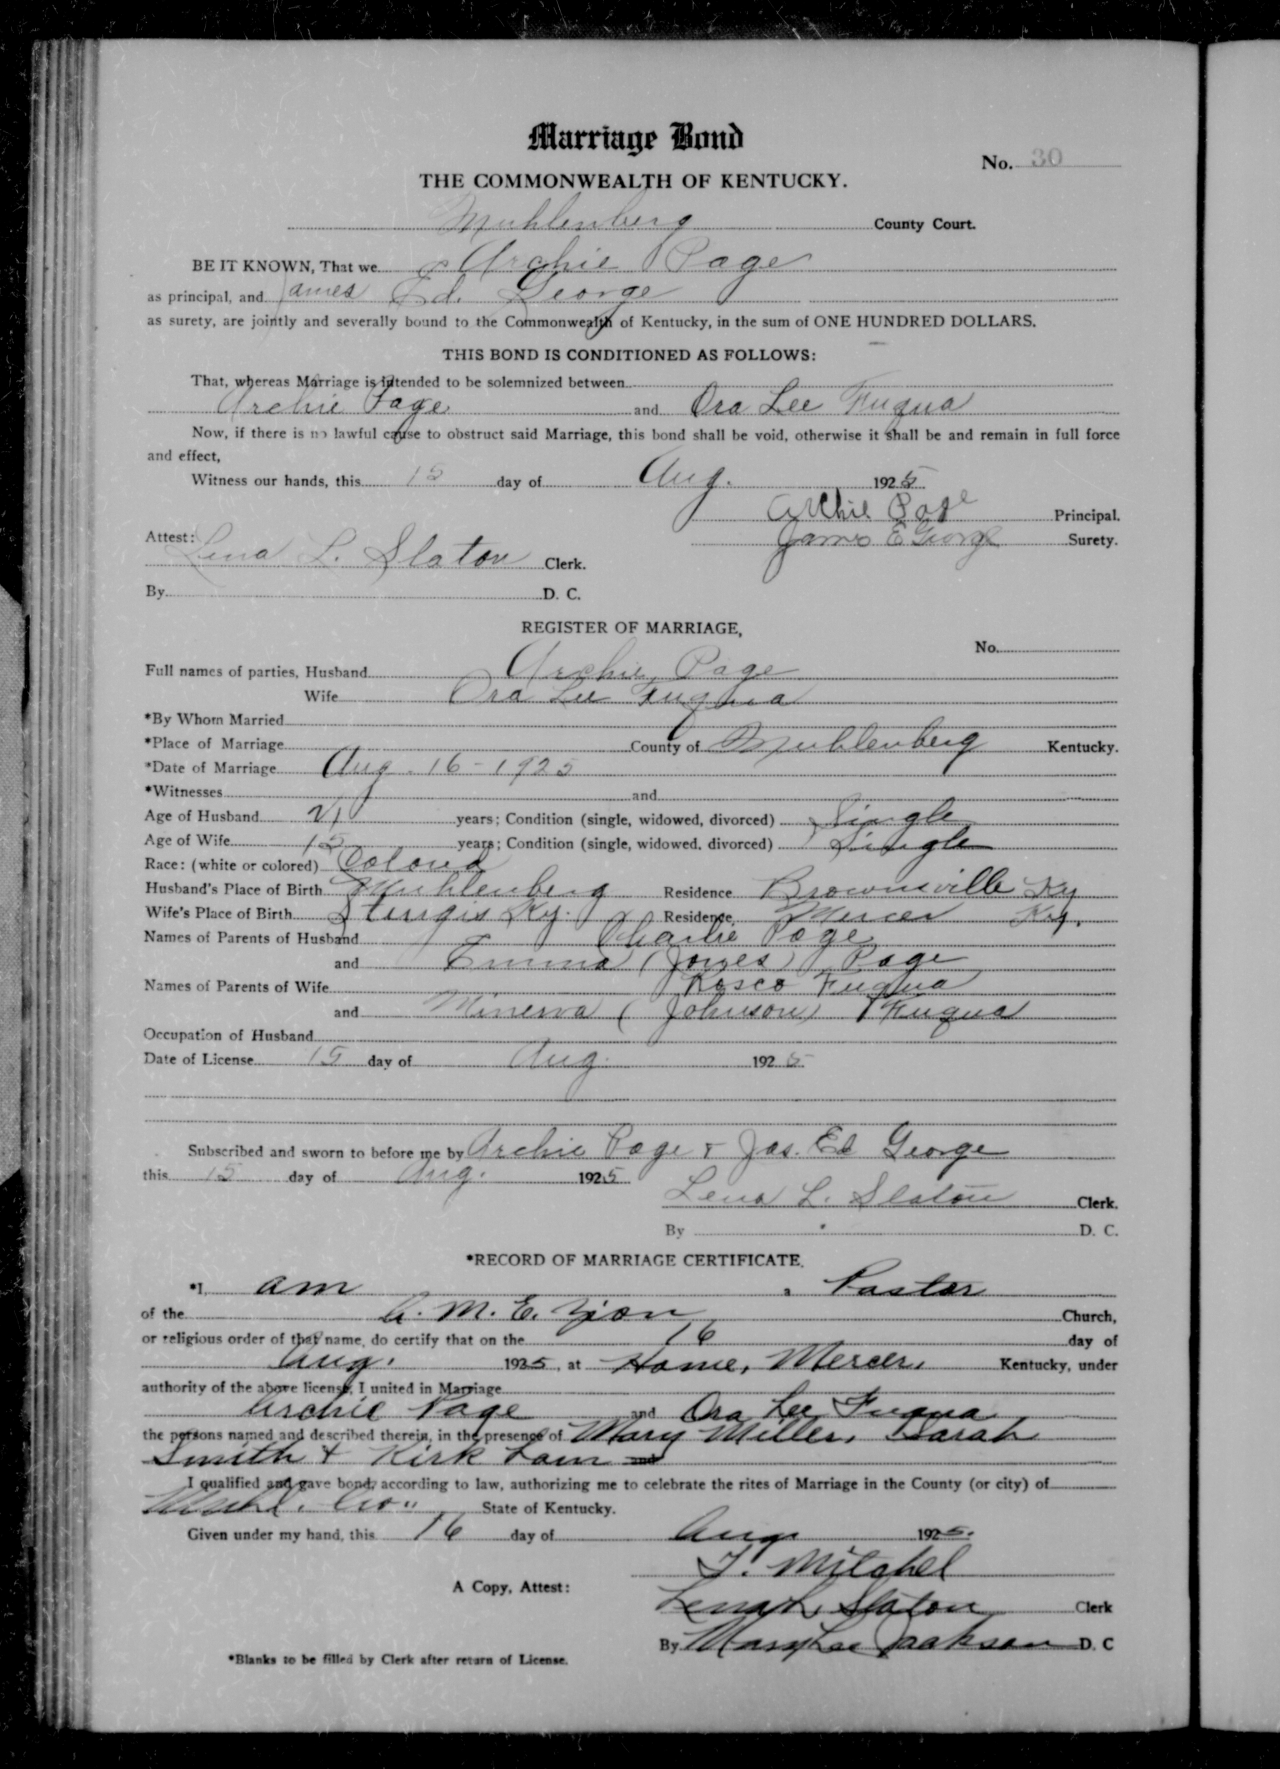 Marriage Bond
No. 30
THE COMMONWEALTH OF KENTUCKY.
Muhlenberg County Court.
BE IT KNOWN, That we Archie Page
as principal, and James Ed. George
as surety, are jointly and severally bound to the Commonwealth of Kentucky, in the sum of ONE HUNDRED DOLLARS.
THIS BOND IS CONDITIONED AS FOLLOWS:
That, whereas Marriage is intended to be solemnized between
Archie Page and Ora Lee Fuqua
Now, if there is no lawful cause to obstruct said Marriage, this bond shall be void, otherwise it shall be and remain in full force
and effect,
Witness our hands, this 15 day of Aug. 1925
Archie Page Principal.
James E George Surety.
Attest:
Lena L. Slaton Clerk.
By D. C.
REGISTER OF MARRIAGE,
No.
Full names of parties, Husband Archie Page
Wife Ora Lee Fuqua
*By Whom Married
*Place of Marriage County of Muhlenberg Kentucky.
*Date of Marriage Aug. 16 - 1925
*Witnesses and
Age of Husband 21 years; Condition (single, widowed, divorced) Single
Age of Wife 15 years; Condition (single, widowed, divorced) Single
Race: (white or colored) Colored
Husband's Place of Birth Muhlenberg Residence Brownsville Ky
Wife's Place of Birth Sturgis Ky. Residence, Mercer Ky.
Names of Parents of Husband Charlie Page
and Emma (Jones) Page
Names of Parents of Wife Rosco Fuqua
and Minerva (Johnson) Fuqua
Occupation of Husband
Date of License 15 day of Aug. 1925
Subscribed and sworn to before me by Archie Page & Jas. Ed George
this 15 day of Aug. 1925
Lena L. Slaton Clerk.
By D. C.
*RECORD OF MARRIAGE CERTIFICATE.
*I, am , Pastor
of the A. M. E. Zion Church,
or religious order of that name, do certify that on the 16 day of
Aug. 1925, at Home, Mercer, Kentucky, under
authority of the above license, I united in Marriage
Archie Page and Ora Lee Fuqua
the persons named and described therein, in the presence of Mary Miller, Sarah
Smith & Kirk Lam
I qualified and gave bond, according to law, authorizing me to celebrate the rites of Marriage in the County (or city) of
Muhl. State of Kentucky.
Given under my hand, this 16 day of Aug. 1925.
T. Mitchel
A Copy, Attest:
Lena L. Slaton Clerk
By Mary Lee Jackson D. C
*Blanks to be filled by Clerk after return of License.